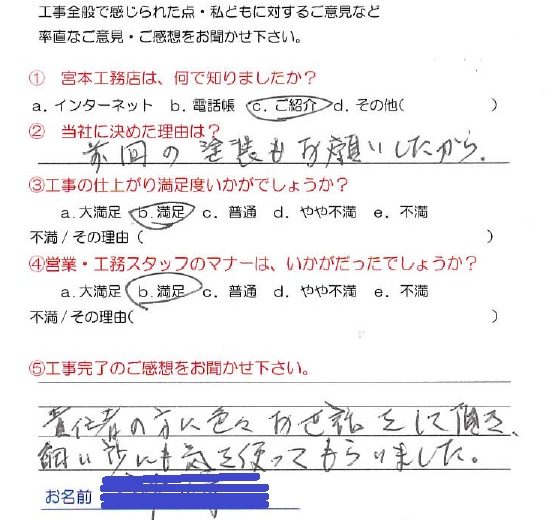 工事全般で感じられた点・私どもに対するご意見など
率直なご意見・ご感想をお聞かせ下さい。
① 宮本工務店は、何で知りましたか？
a. インターネット b. 電話帳 c. ご紹介 d. その他( )
② 当社に決めた理由は？
前回の塗装もお願いしたから。
③工事の仕上がり満足度いかがでしょうか？
a.大満足 b.満足 c. 普通 d. やや不満 e. 不満
不満/その理由( )
④営業・工務スタッフのマナーは、いかがだったでしょうか？
a.大満足 b.満足 c. 普通 d. やや不満 e. 不満
不満/その理由( )
⑤工事完了のご感想をお聞かせ下さい。
責任者の方に色々お世話をして頂き、
細い所にも気を使ってもらいました。
お名前